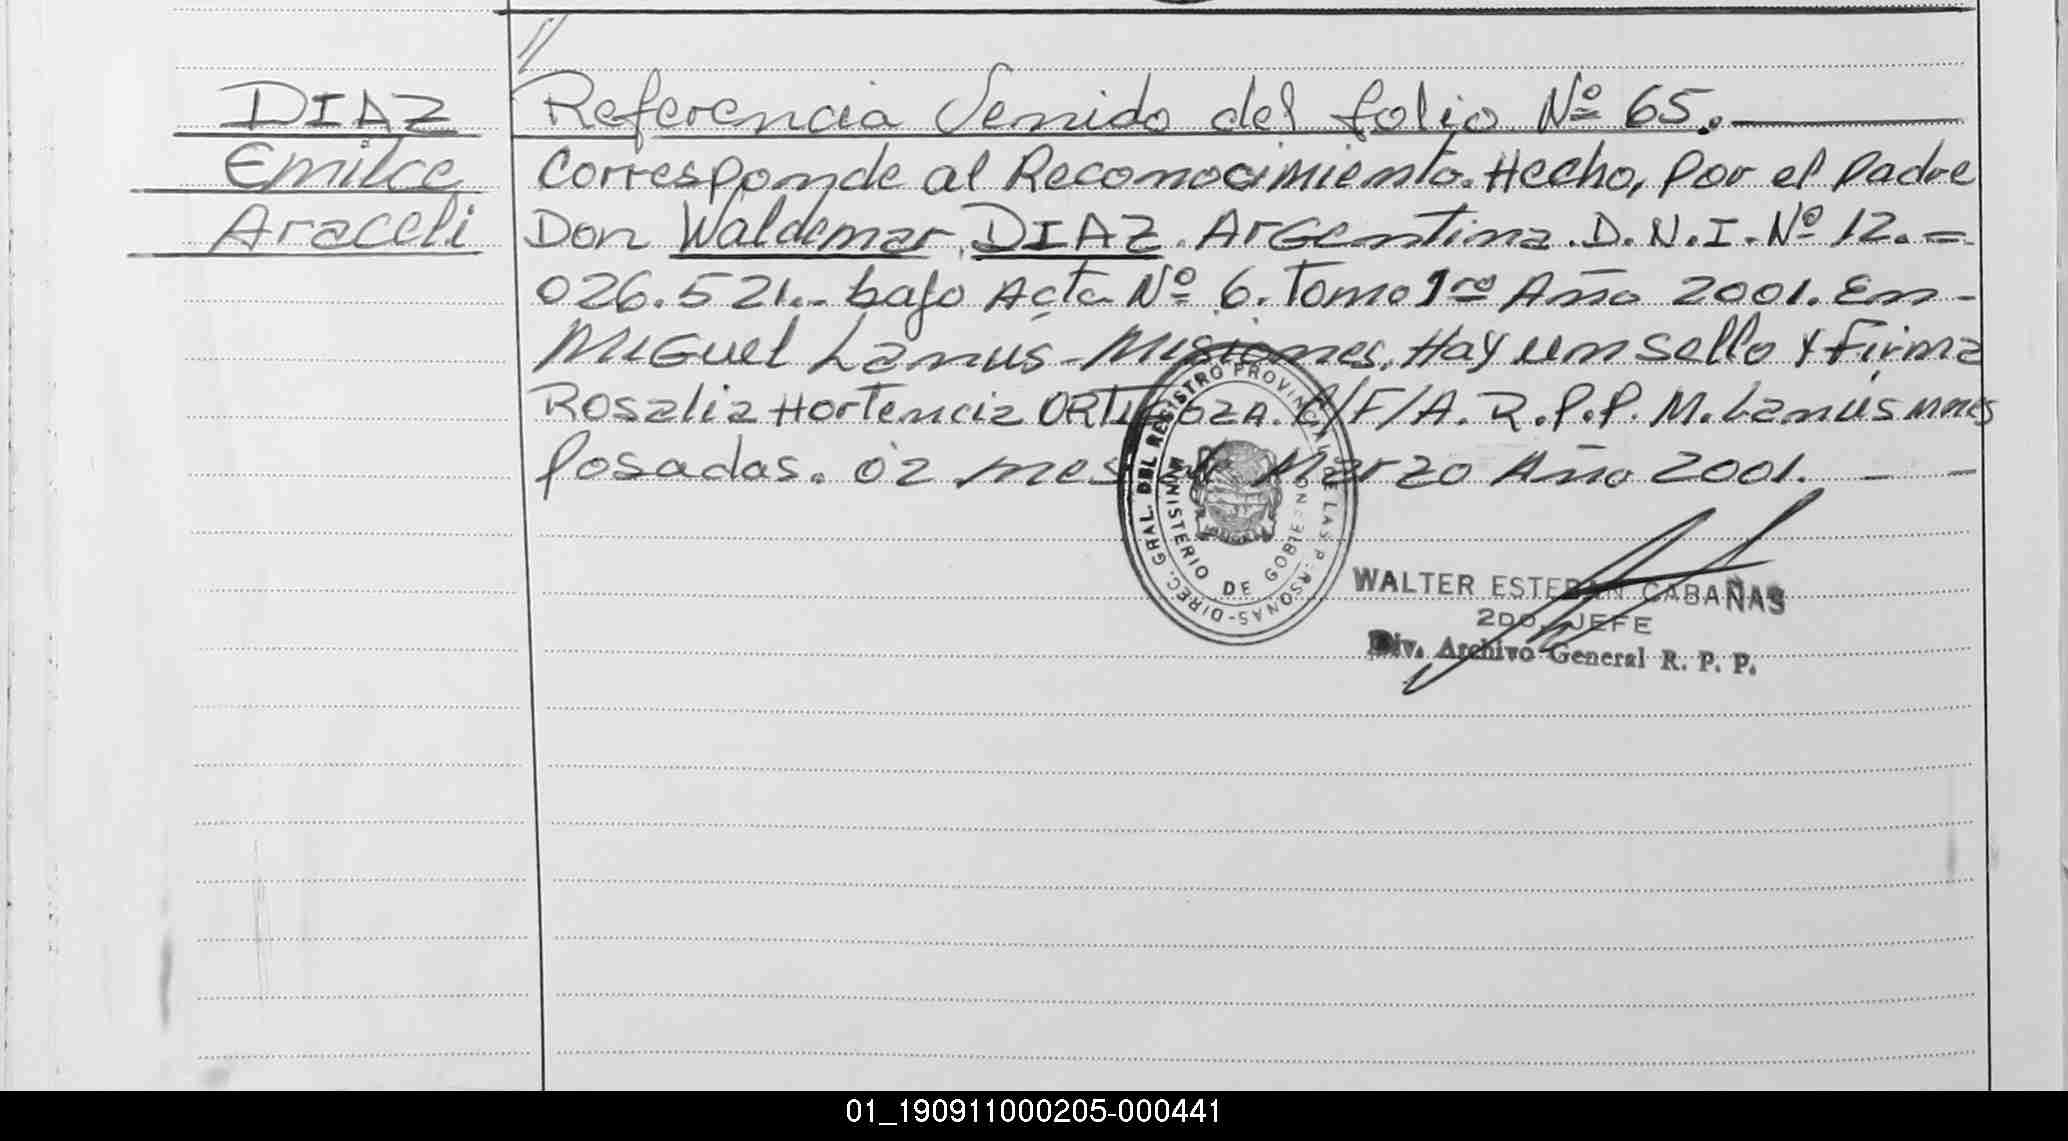 DIAZ
Emilce
Araceli
//
Referencia Venido del folio Nº 65.
Corresponde al Reconocimiento. Hecho, Por el Padre
Don Waldemar, DIAZ. Argentina. D.N.I. Nº 12.=
026.521.- bajo Acta Nº 6. Tomo 1ro Año 2001. En-
Miguel Lanús - Misiones. Hay un sello y Firma
Rosalia Hortencia ORTIGOZA. /F/A. R.P.P. M. Lanús Mnes
Posadas. 02 mes de Marzo Año 2001. - -
DIREC. GRAL. DEL REGISTRO PROVINCIAL DE LAS PERSONAS-
MINISTERIO DE GOBIERNO
WALTER ESTEBAN CABAÑAS
2DO. JEFE
Div. Archivo General R. P. P.
01_190911000205-000441